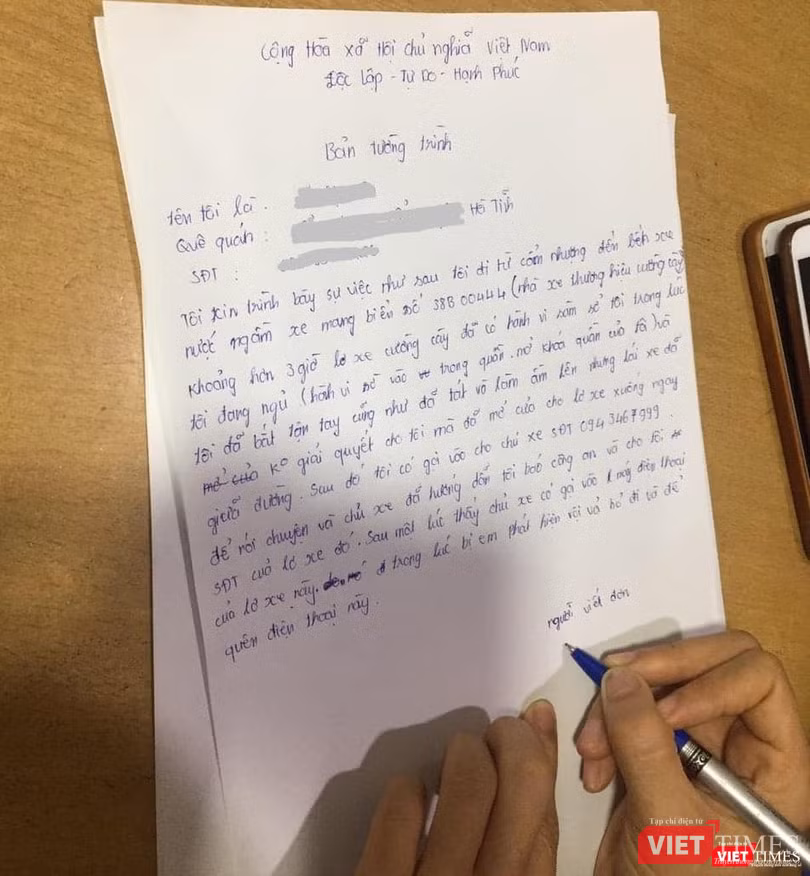 Cộng Hòa xã Hội chủ nghĩa Việt Nam
Độc Lập - Tự Do - Hạnh Phúc
Bản tường trình
Tên tôi là :
Quê quán : Hà Tĩnh
SĐT :
Tôi xin trình bày sự việc như sau tôi đi từ cẩm nhượng đến bến xe
nước ngầm xe mang biển số 38B 00444 (nhà xe thương hiệu cường cậy)
Khoảng hơn 3 giờ lơ xe cường cậy đã có hành vi sàm sỡ tôi trong lúc
tôi đang ngủ (hành vi sờ vào trong quần. mở khóa quần của tôi) và
tôi đã bắt tận tay cũng như đã tát và làm ầm lên nhưng lái xe đã
mở cửa ko giải quyết cho tôi mà đã mở cửa cho lơ xe xuống ngay
giữa đường. Sau đó tôi có gọi vào cho chủ xe SĐT 0943467999.
để nói chuyện và chủ xe đã hướng dẫn tôi báo công an và cho tôi
SĐT của lơ xe đó. Sau một lúc thấy chủ xe có gọi vào 1 máy điện thoại
của lơ xe này. trong lúc bị em phát hiện vội vả bỏ đi và để
quên điện thoại này.
người viết đơn
Tạp chí điện tử
VIETTIMES
VIETTIMES